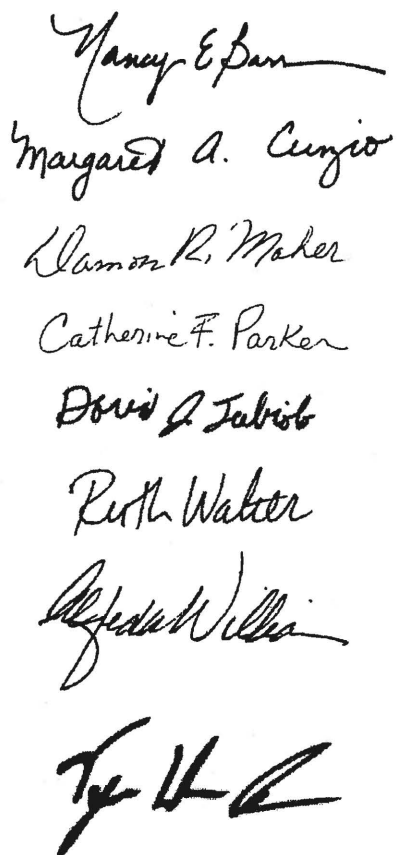 Nancy E Barr
Margaret A. Cunzio
Damon R. Maher
Catherine F. Parker
David J. Tubiolo
Ruth Walter
Alfreda Willia